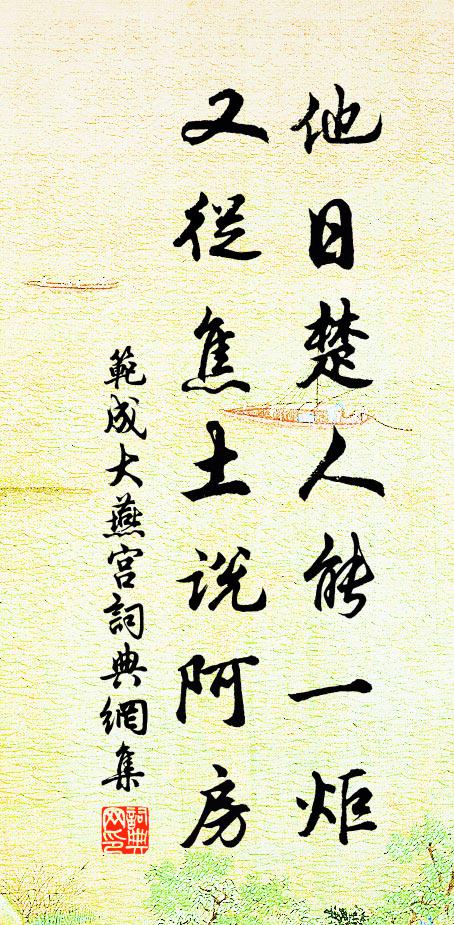 他日楚人能一炬
又從焦土說阿房
範成大燕宮詞典網集
詞典網印